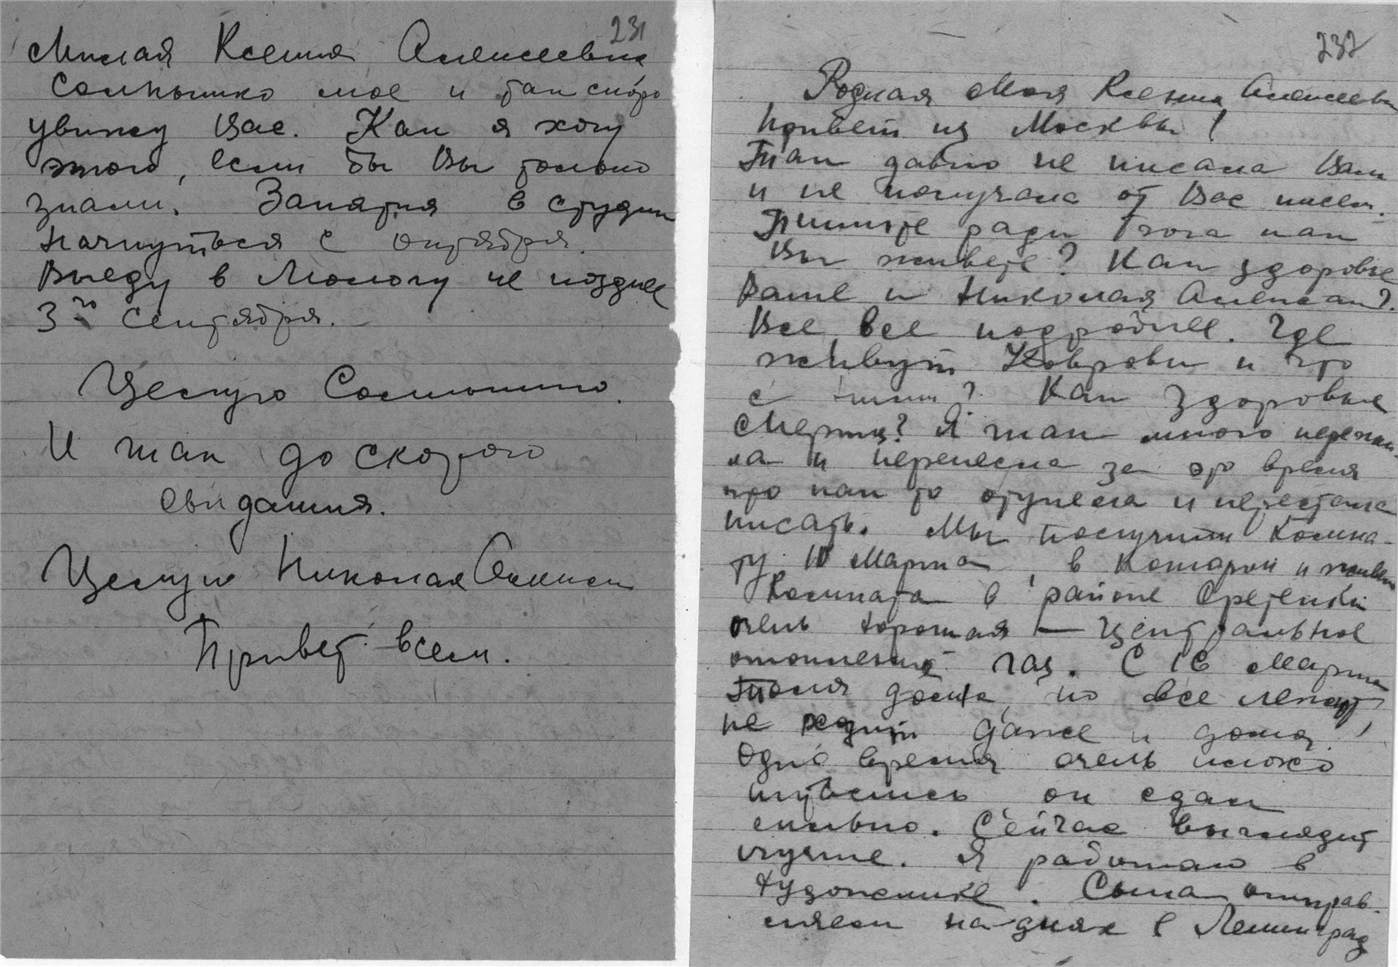 231
Милая Ксения Алексеевна
Солнышко мое и так скоро
увижу Вас. Как я хочу
этого, если бы Вы только
знали. Занятия в студии
начнуться с октября.
Выеду в Мологу не позднее
3го сентября.
Целую Солнышко.
И так до скорого
свидания.
Целую Николая Алексан
Привет всем.
232
Родная моя Ксения Алексеевн
Привет из Москвы!
Так давно не писала Вам
и не получала от Вас писем.
Пишите ради Бога как
Вы живете? Как здоровье
Ваше и Николая Алексан?
Все все подробнее. Где
живут Ковровы и что
с ними? Как здоровье
Я так много пережи
ла и перенесла за это время
что как то отупела и перестала
писать. Мы получили комна-
ту 10 Марта в которой и живем
Комната в районе Сретенки
очень хорошая — центральное
отопление газ. С 16 Марта
Толя дома, но все лежит,
не ходит даже и дома.
Одно время очень плохо
чувствовал он сдал
сильно. Сейчас выглядит
лучше. Я работаю в
художнике. Сына отправ-
ляем на-днях в Ленинград